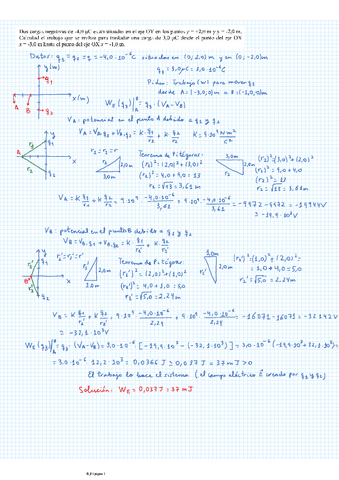 Dos cargas negativas de -4,0 μC están situadas en el eje OY en los puntos y = +2,0 m y y = -2,0 m.
Calcula el trabajo que se realiza para trasladar una carga de 3,0 μC desde el punto del eje OX
x = -3,0 m hasta el punto del eje OX x = -1,0 m.
Datos: q₁ = q₂ = q = -4,0·10⁻⁶ C situadas en (0; 2,0) m y en (0; -2,0) m
q₃ = 3,0 μC = 3,0·10⁻⁶ C
Piden: Trabajo (W) para mover q₃
desde A = (-3,0; 0) m a B = (-1,0; 0) m
y(m)
x(m)
W_E (q₃)]_A^B = q₃ · (V_A - V_B)
V_A: potencial en el punto A debido a q₁ y q₂
V_A = V_A,q₁ + V_A,q₂ = K·q₁/r₁ + K·q₂/r₂ K = 9·10⁹ N m²/C²
r₁ = r₂ = r
Teorema de Pitágoras:
2,0m
3,0m
(r₁)² = (2,0)² + (3,0)²
(r₁)² = 4,0 + 9,0 = 13
r₁ = √13 = 3,61 m
3,0m
2,0m
(r₂)² = (3,0)² + (2,0)²
(r₂)² = 9,0 + 4,0
(r₂)² = 13
r₂ = √13 = 3,61 m
V_A = K q₁/r₁ + K q₂/r₂ = 9·10⁹ · -4,0·10⁻⁶/3,61 + 9·10⁹ · -4,0·10⁻⁶/3,61 = -9972 - 9972 = -19944 V
≃ -19,9·10³ V
V_B: potencial en el punto B debido a q₁ y q₂
V_B = V_B,q₁ + V_B,q₂ = K·q₁/r₁' + K·q₂/r₂'
y(m)
x(m)
r₁' = r₂' = r'
Teorema de Pitágoras:
2,0m
(r₁')² = (2,0)² + (1,0)²
(r₁')² = 4,0 + 1,0 = 5,0
r₁' = √5,0 = 2,24 m
2,0m
(r₂')² = (1,0)² + (2,0)² =
= 1,0 + 4,0 = 5,0
r₂' = √5,0 = 2,24 m
V_B = K q₁/r₁' + K q₂/r₂' = 9·10⁹ · -4,0·10⁻⁶/2,24 + 9·10⁹ · -4,0·10⁻⁶/2,24 = -16071 - 16071 = -32142 V
≃ -32,1·10³ V
W_E (q₃)]_A^B = q₃·(V_A - V_B) = 3,0·10⁻⁶ [-19,9·10³ - (-32,1·10³)] = 3,0·10⁻⁶ (-19,9·10³ + 32,1·10³)
= 3,0·10⁻⁶ · 12,2·10³ = 0,0366 J ≃ 0,037 J = 37 mJ > 0
El trabajo lo hace el sistema (el campo eléctrico E⃗ creado por q₁ y q₂)
Solución: W_E = 0,037 J = 37 mJ